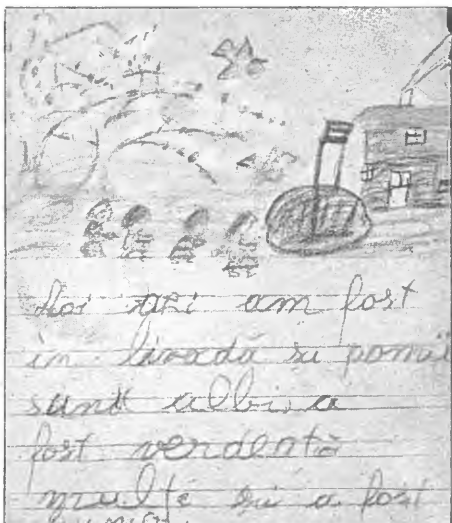 Noi azi am fost
in livadă su pomii
sunt albi, a
fost verdentă
multe și a fost